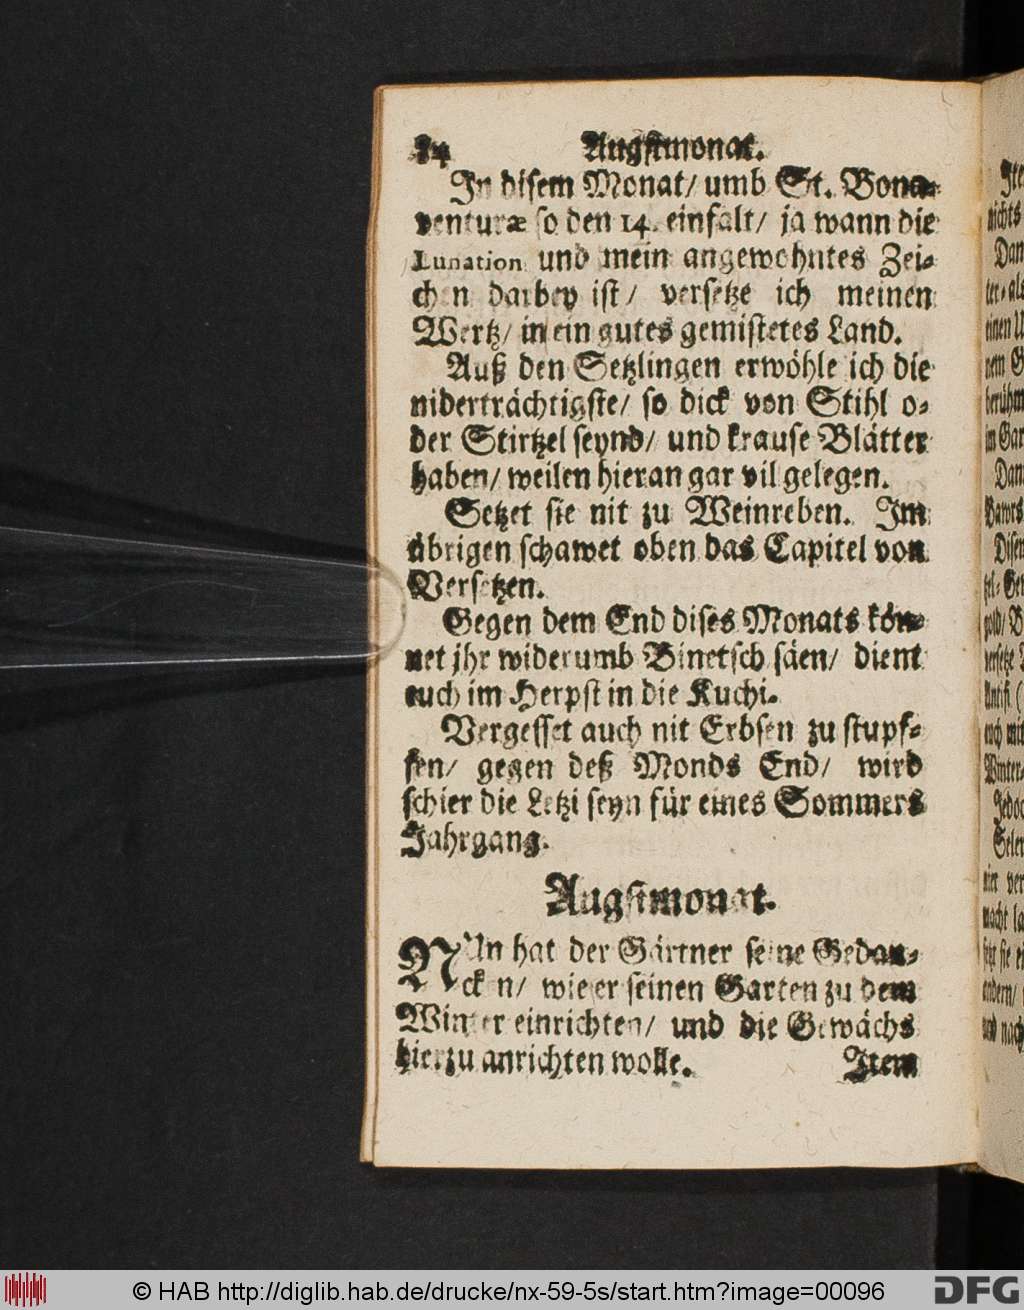 84 Augstmonat.
In disem Monat/ umb St. Bona-
venturæ so den 14. einfalt/ ja wann die
Lunation und mein angewohntes Zei-
chen darbey ist/ versetze ich meinen
Wertz/ in ein gutes gemistetes Land.
Auß den Setzlingen erwöhle ich die
niderträchtigste/ so dick von Stihl o-
der Stirtzel seynd/ und krause Blätter
haben/ weilen hieran gar vil gelegen.
Setzet sie nit zu Weinreben. Im
übrigen schawet oben das Capitel von
Versetzen.
Gegen dem End dises Monats kön-
net jhr widerumb Binetsch säen/ dient
euch im Herpst in die Kuchi.
Vergesset auch nit Erbsen zu stupf-
fen/ gegen deß Monds End/ wird
schier die Letzi seyn für eines Sommers
Jahrgang.
Augstmonat.
NUn hat der Gärtner seine Gedan-
cken/ wie er seinen Garten zu dem
Winter einrichten/ und die Gewächs
hierzu anrichten wolle. Item
© HAB http://diglib.hab.de/drucke/nx-59-5s/start.htm?image=00096
DFG